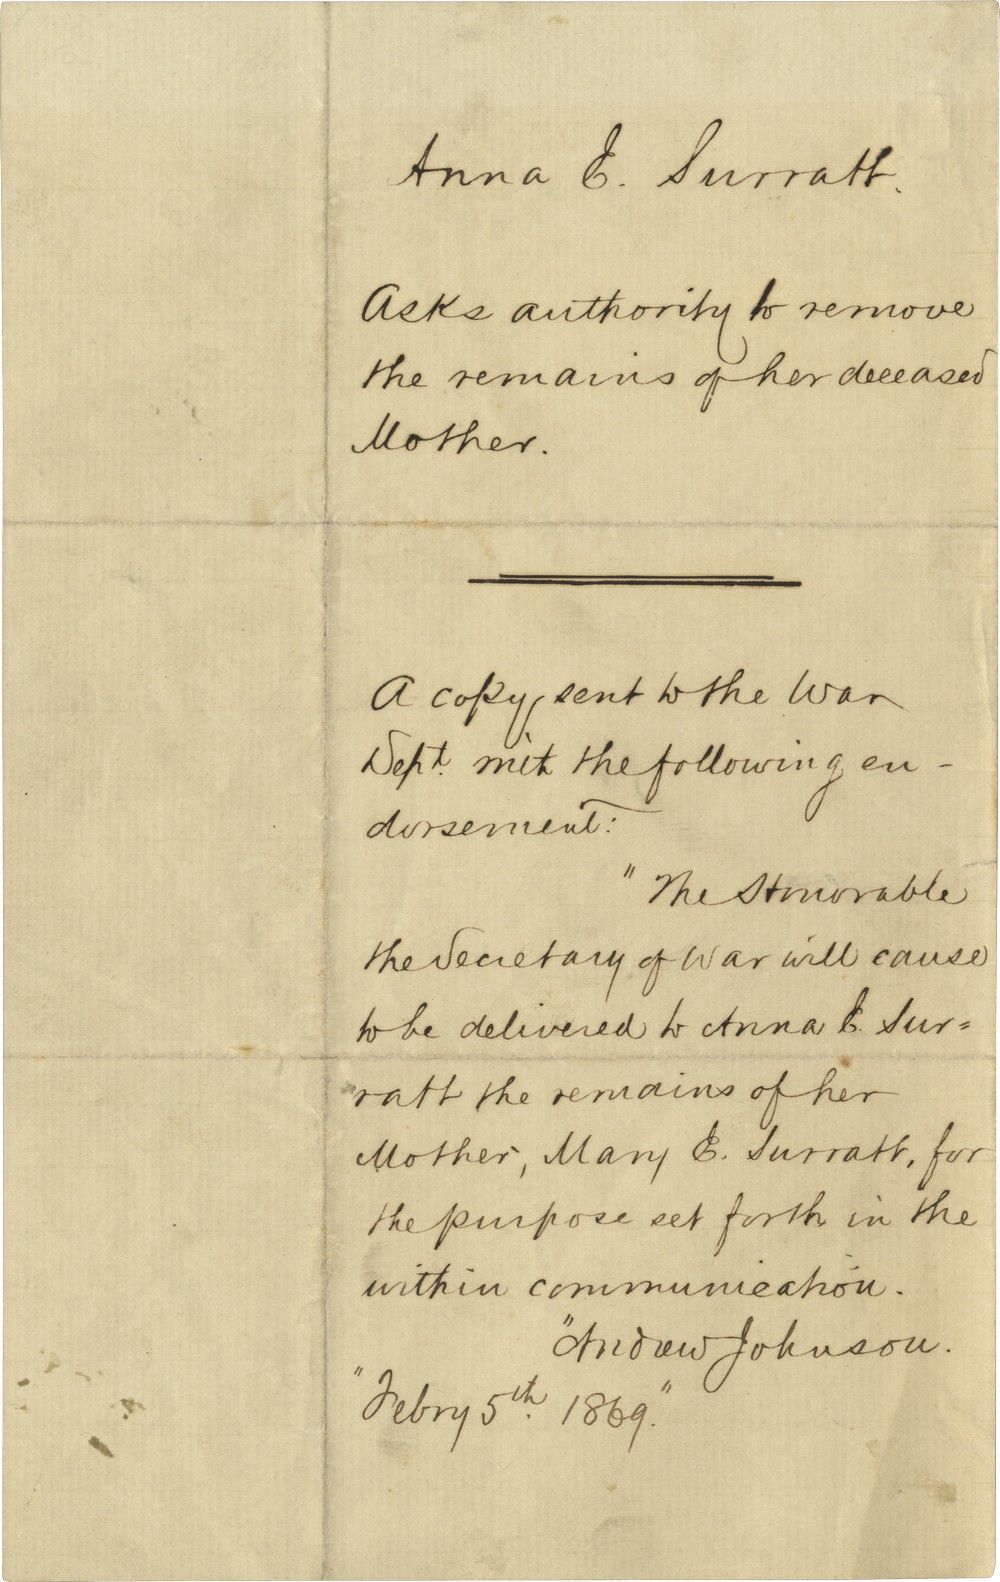 Anna E. Surratt.
Asks authority to remove
the remains of her deceased
Mother.
A copy sent to the War
Dept. with the following en-
dorsement:
"The Honorable
the Secretary of War will cause
to be delivered to Anna E. Sur=
ratt the remains of her
Mother, Mary E. Surratt, for
the purpose set forth in the
within communication.
"Andrew Johnson.
"Febry 5th. 1869."